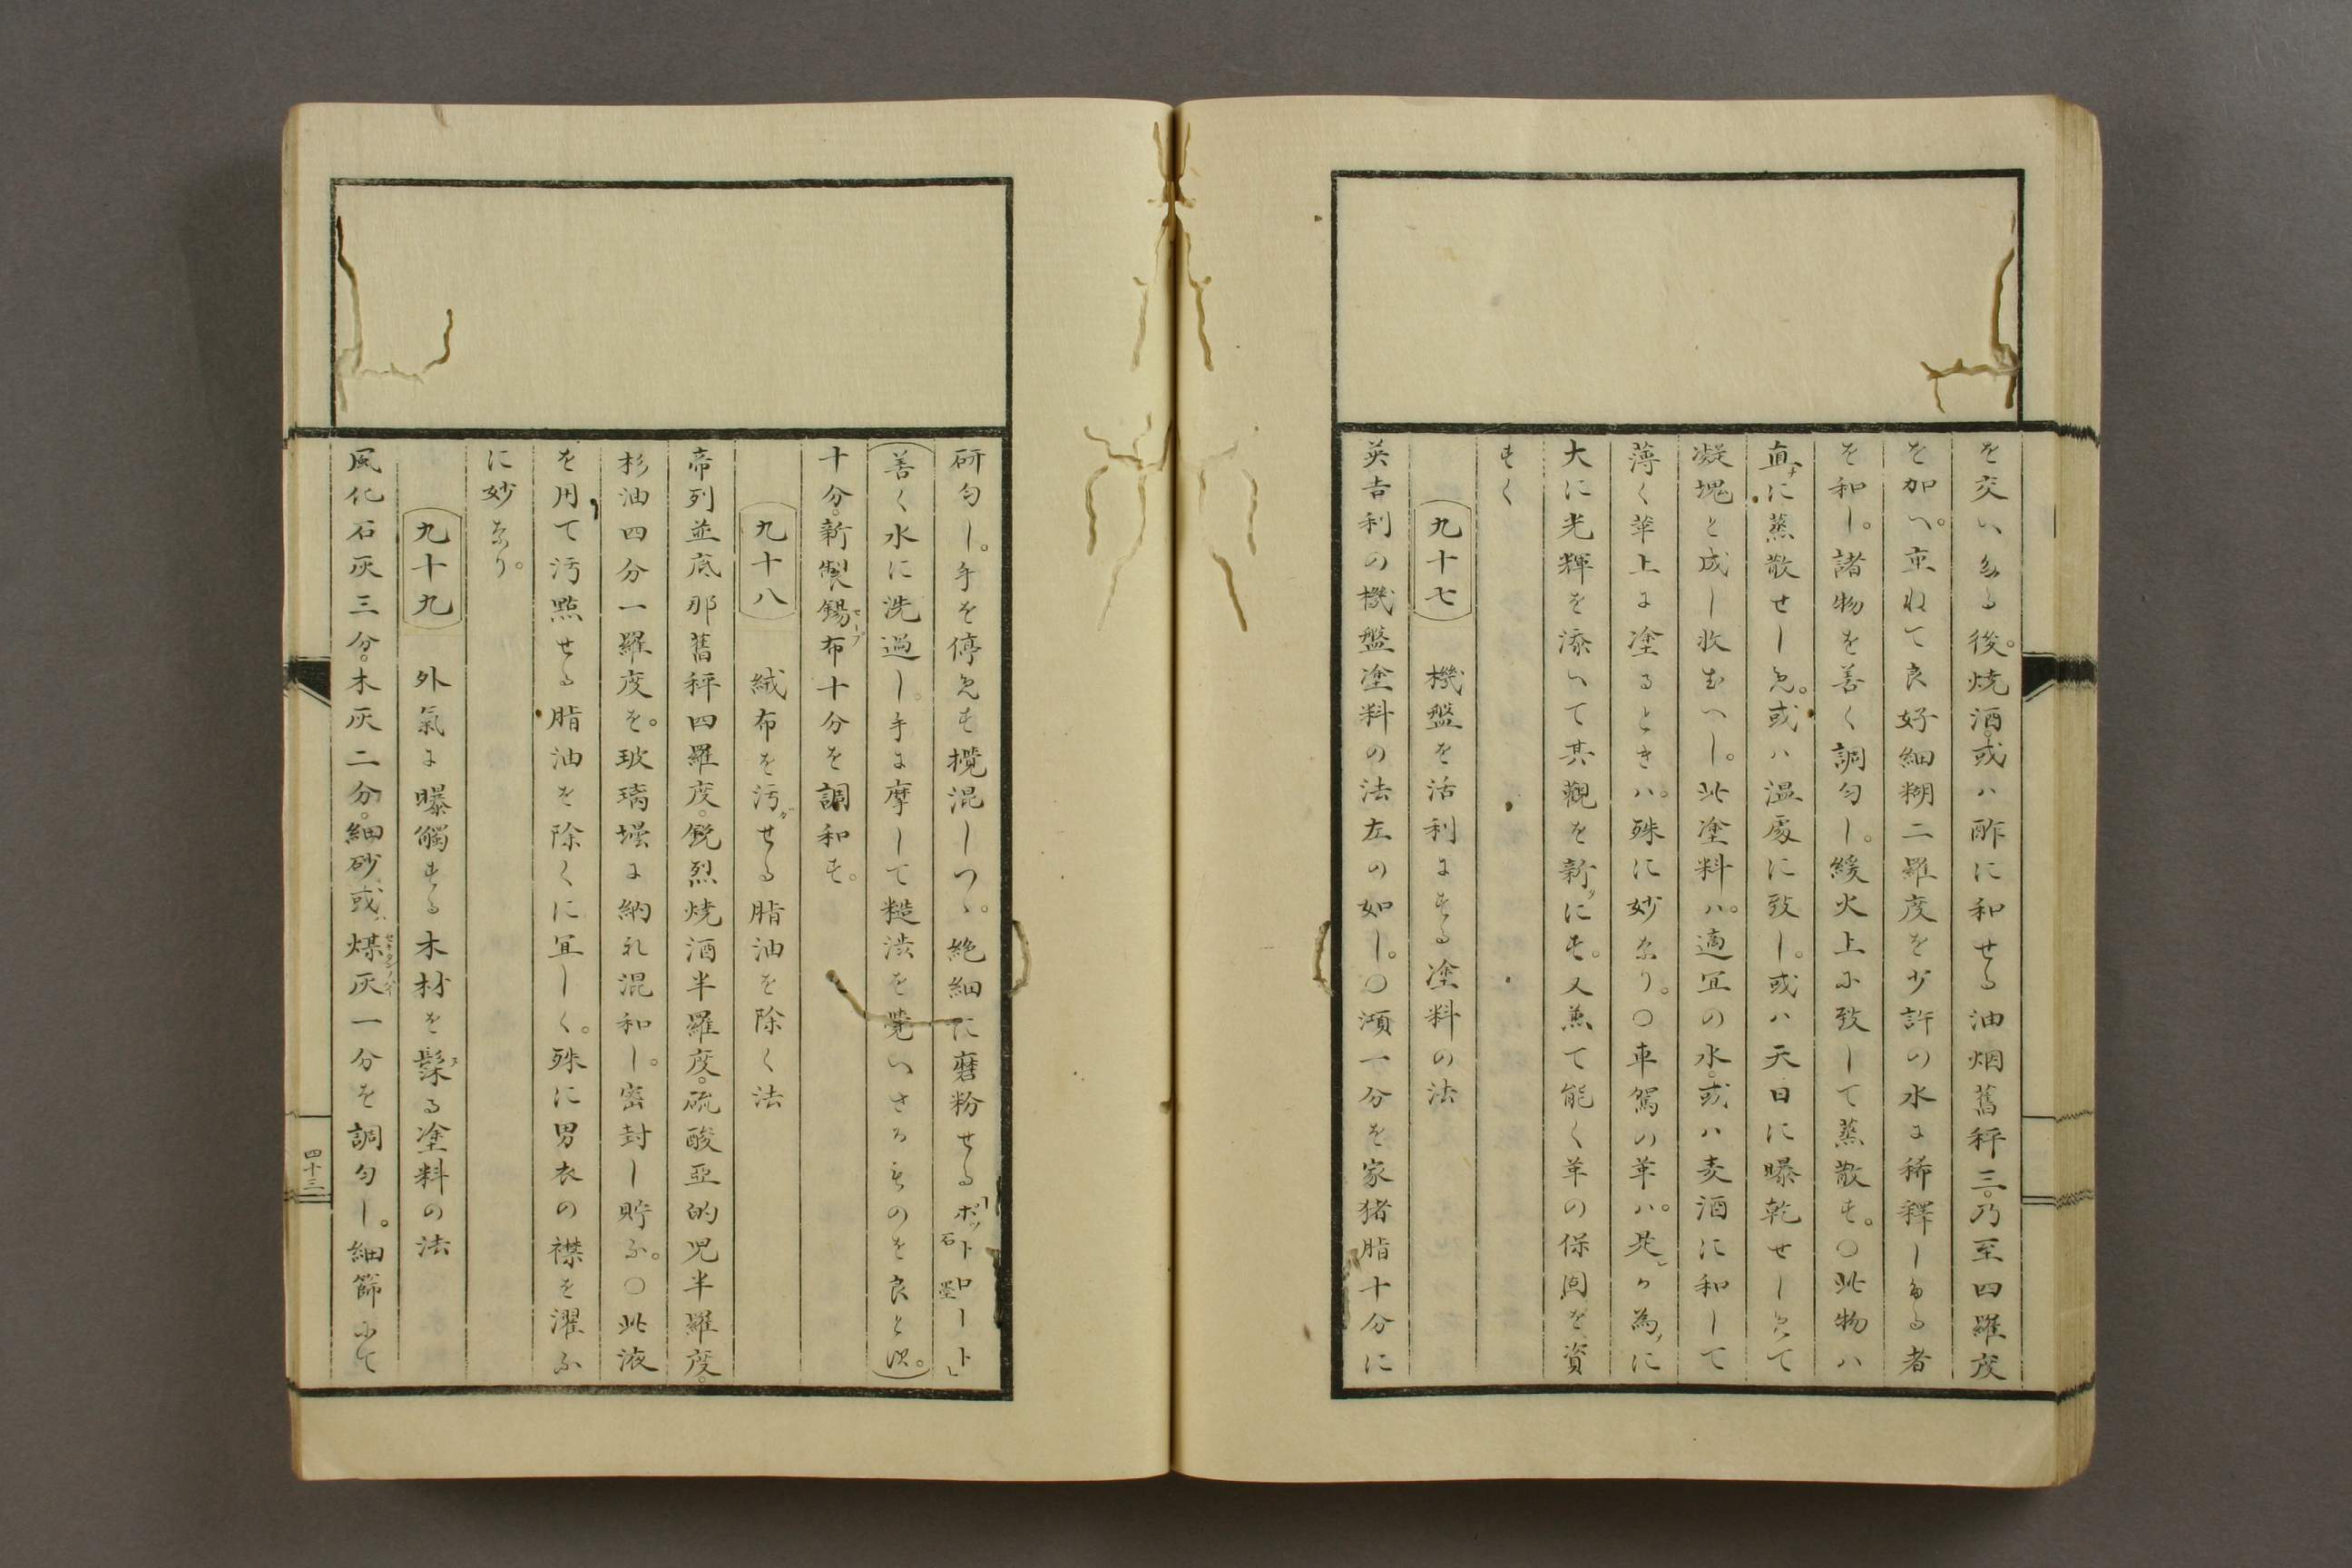 を交へたる後。焼酒。或ハ酢に和せる油烟舊秤三。乃至四羅度
を加へ。重ねて良好細糊二羅度を少許の水に稀釋したる者
を和し。諸物を善く調匀し。緩火上に致して蒸散す。〇此物ハ
直チに蒸散せしめ。或ハ温處に致し。或ハ天日に曝乾せしめて
凝塊と成し收むへし。此塗料ハ。適宜の水。或ハ麦酒に和して
薄く革上に塗るときハ。殊に妙なり。〇車駕の革ハ。是レカ為メに
大に光輝を添へて其觀を新タにす。又兼て能く革の保固を資
すく
九十七　機盤を活利にする塗料の法
英吉利の機盤塗料の法左の如し。〇澒一分を家猪脂十分に
研匀し。手を停めす攪混しつゝ。絶細に磨粉せる「ポットロート」石墨
（善く水に洗過し。手に摩して糙渋を覺へさるものを良と次。）
十分。新製錫布セープ十分を調和す。
九十八　絨布を汚カせる脂油を除く法
帝列並底那舊秤四羅度。鋭烈焼酒半羅度。硫酸亞的児半羅度。
杉油四分一羅度を。玻璃壜に納れ混和し。密封し貯ふ。〇此液
を用て汚點せる脂油を除くに宜しく。殊に男衣の襟を濯ふ
に妙なり。
九十九　外氣に曝觸する木材を髹ヌる塗料の法
風化石灰三分。木灰二分。細砂或ハ煤灰セキタンノハイ一分を調匀し。細篩にて
四十三